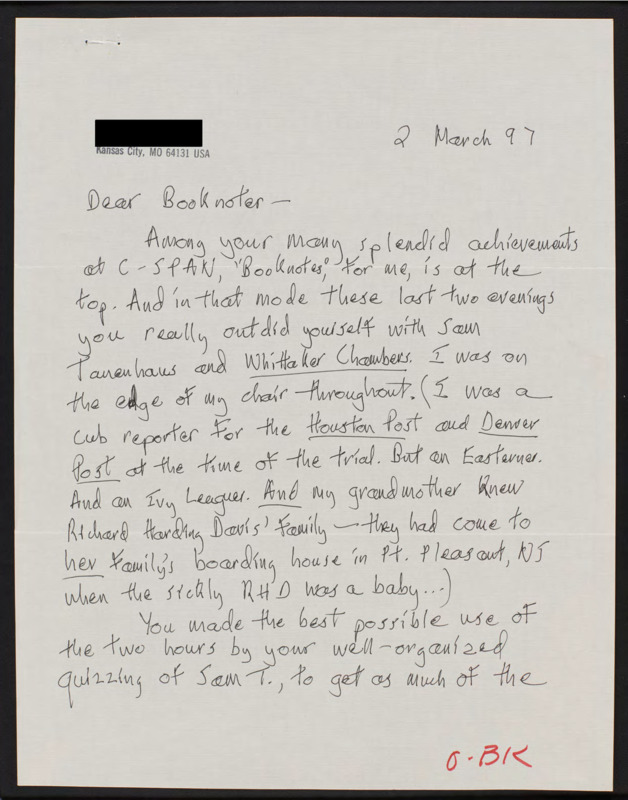 Kansas City, MO 64131 USA
2 March 97
Dear Booknoter —
Among your many splendid achievements
at C-SPAN, "Booknotes," for me, is at the
top. And in that mode these last two evenings
you really outdid yourself with Sam
Tanenhaus and Whittaker Chambers. I was on
the edge of my chair throughout. (I was a
cub reporter for the Houston Post and Denver
Post at the time of the trial. But an Easterner.
And an Ivy Leaguer. And my grandmother knew
Richard Harding Davis' family — they had come to
her family's boarding house in Pt. Pleasant, NJ
when the sickly RHD was a baby...)
You made the best possible use of
the two hours by your well-organized
quizzing of Sam T., to get as much of the
O-BK